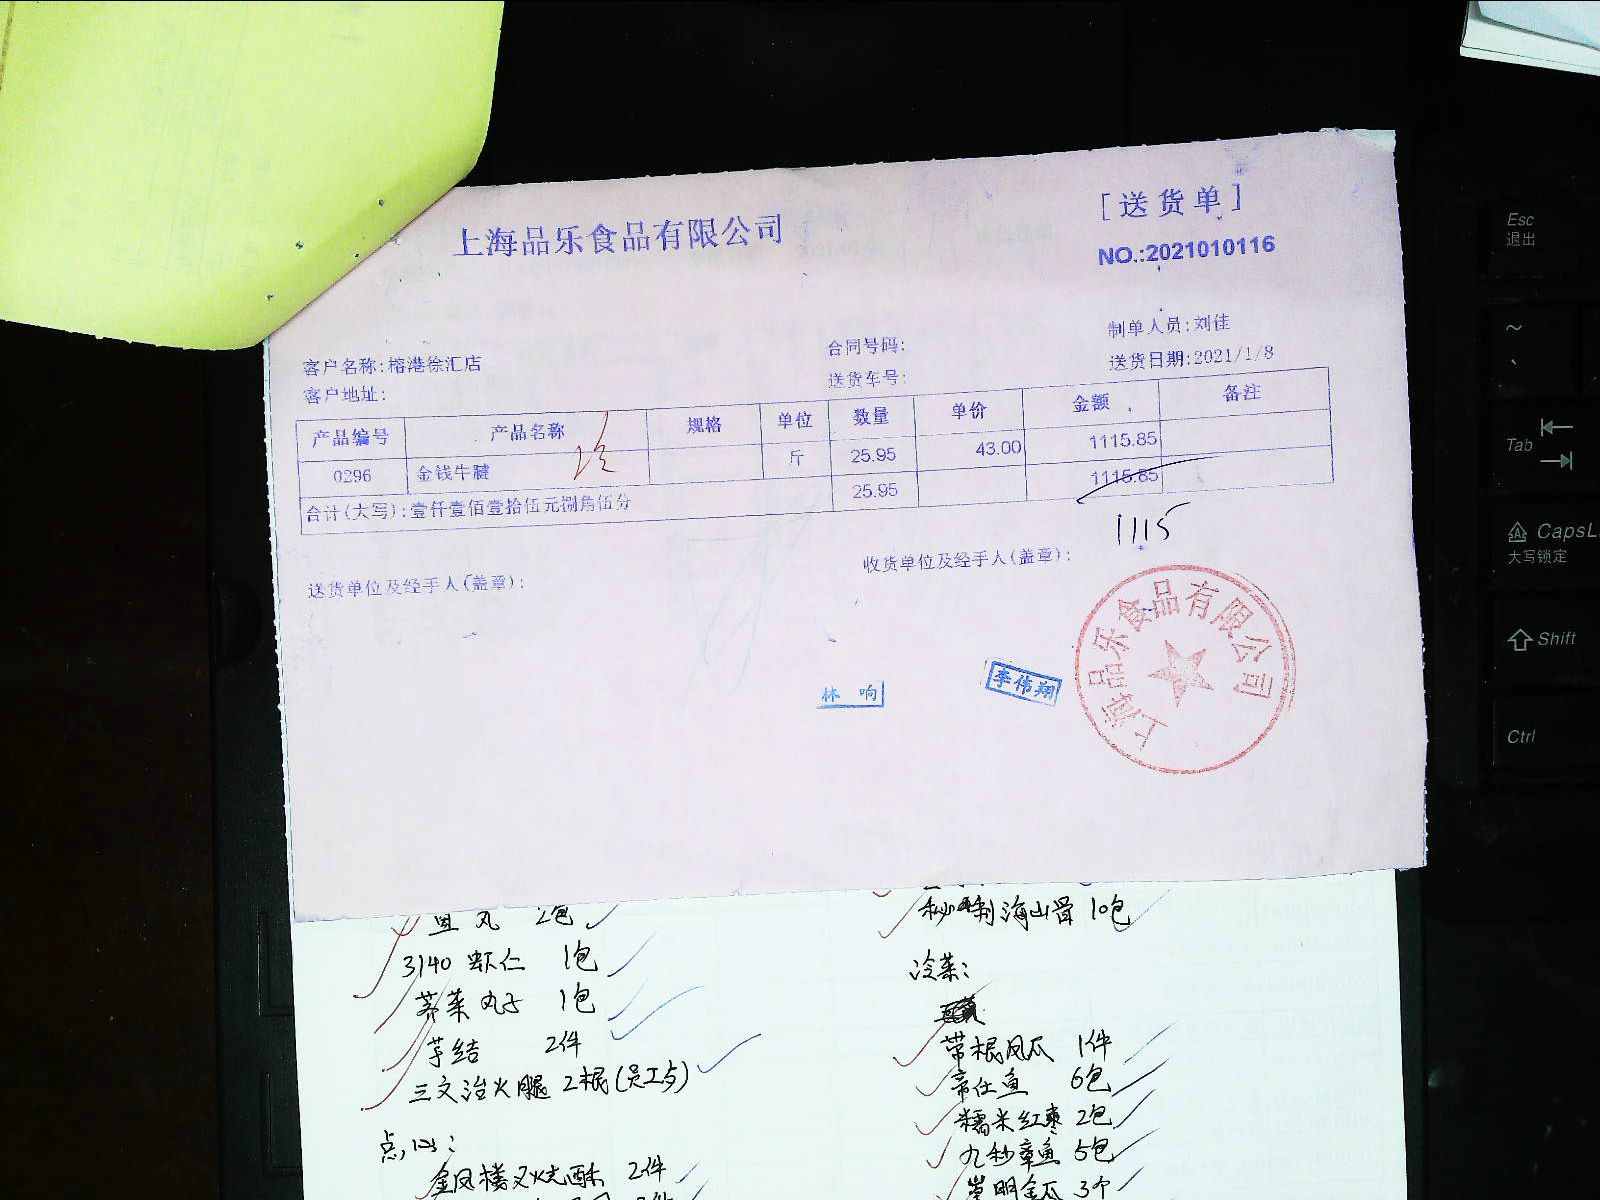 上海品乐食品有限公司
[送货单]
NO.:2021010116
制单人员:刘佳
客户名称:榕港徐汇店
合同号码:
送货日期:2021/1/8
客户地址:
送货车号:
产品编号 产品名称 规格 单位 数量 单价 金额 备注
0296 金钱牛腱 斤 25.95 43.00 1115.85
合计(大写):壹仟壹佰壹拾伍元捌角伍分 25.95 1115.85
1115
送货单位及经手人(盖章):
收货单位及经手人(盖章):
林响
李伟翔
上海品乐食品有限公司
鱼丸 2包
3140 虾仁 1包
荠菜丸子 1包
芋结 2件
三文治火腿 2根(员工点)
点心:
金凤楼叉烧酥 2件
秘制海山骨 10包
冷菜:
带根凤爪 1件
帝仕鱼 6包
糯米红枣 2包
九秒章鱼 5包
崇明金瓜 3个
Esc
退出
~
Tab
CapsL
大写锁定
Shift
Ctrl